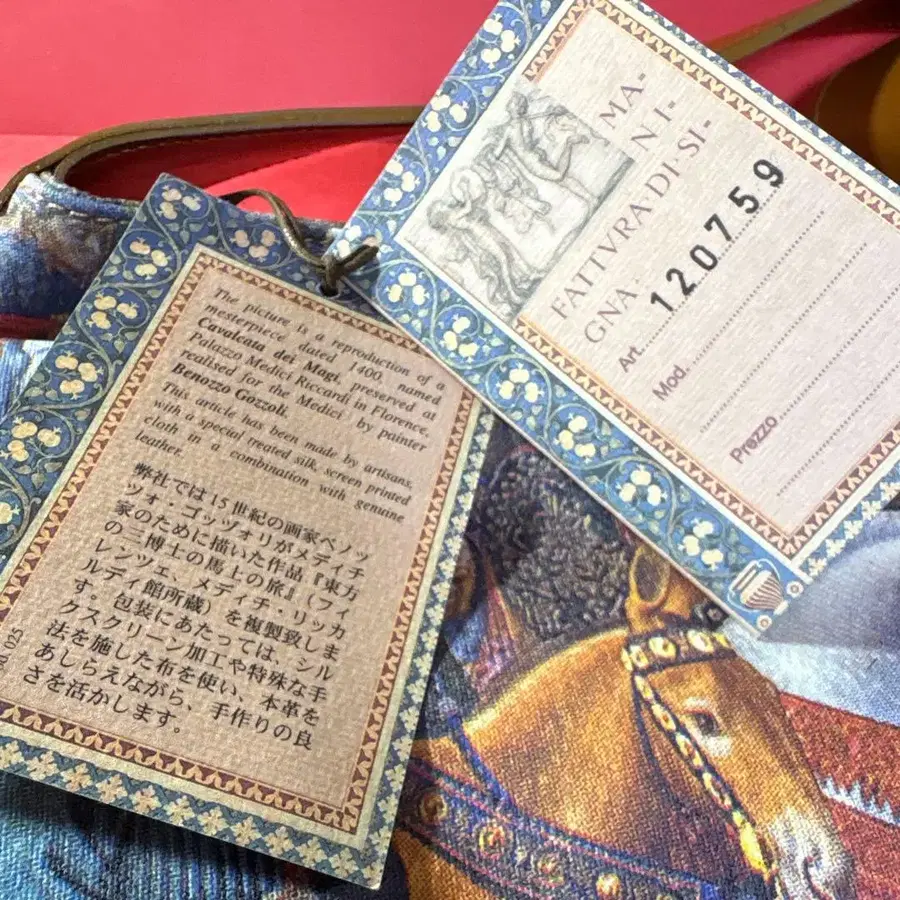 The picture is a reproduction of a
masterpiece dated 1400, named
Cavalcata dei Magi, preserved at
Palazzo Medici Riccardi in Florence,
realised for the Medici by painter
Benozzo Gozzoli.
This article has been made by artisans,
with a special treated silk, screen printed
cloth in a combination with genuine
leather.
弊社では15世紀の画家ベノッ
ツォ・ゴッツォリがメディチ
家のために描いた作品『東方
の三博士の馬上の旅』(フィ
レンツェ、メディチ・リッカ
ルディ館所蔵)を複製致しま
す。包装にあたっては、シル
クスクリーン加工や特殊な手
法を施した布を使い、本革を
あしらえながら、手作りの良
さを活かします。
025
MA-
NI-
FATTVRA·DI·SI-
GNA·
Art. 120759
Mod.
Prezzo